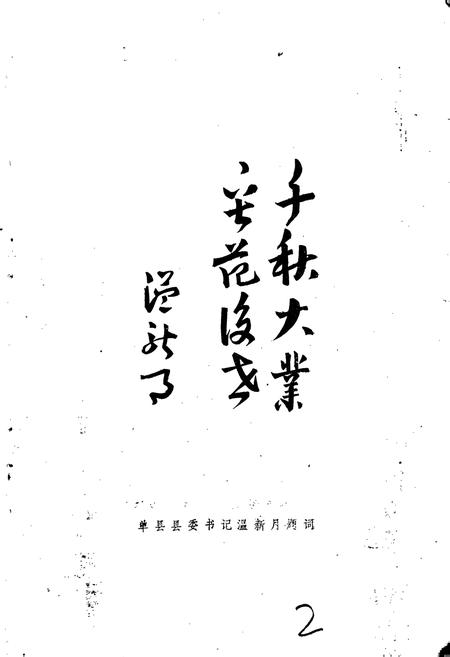 千秋大业
垂范後世
温新月
单县县委书记温新月题词
2